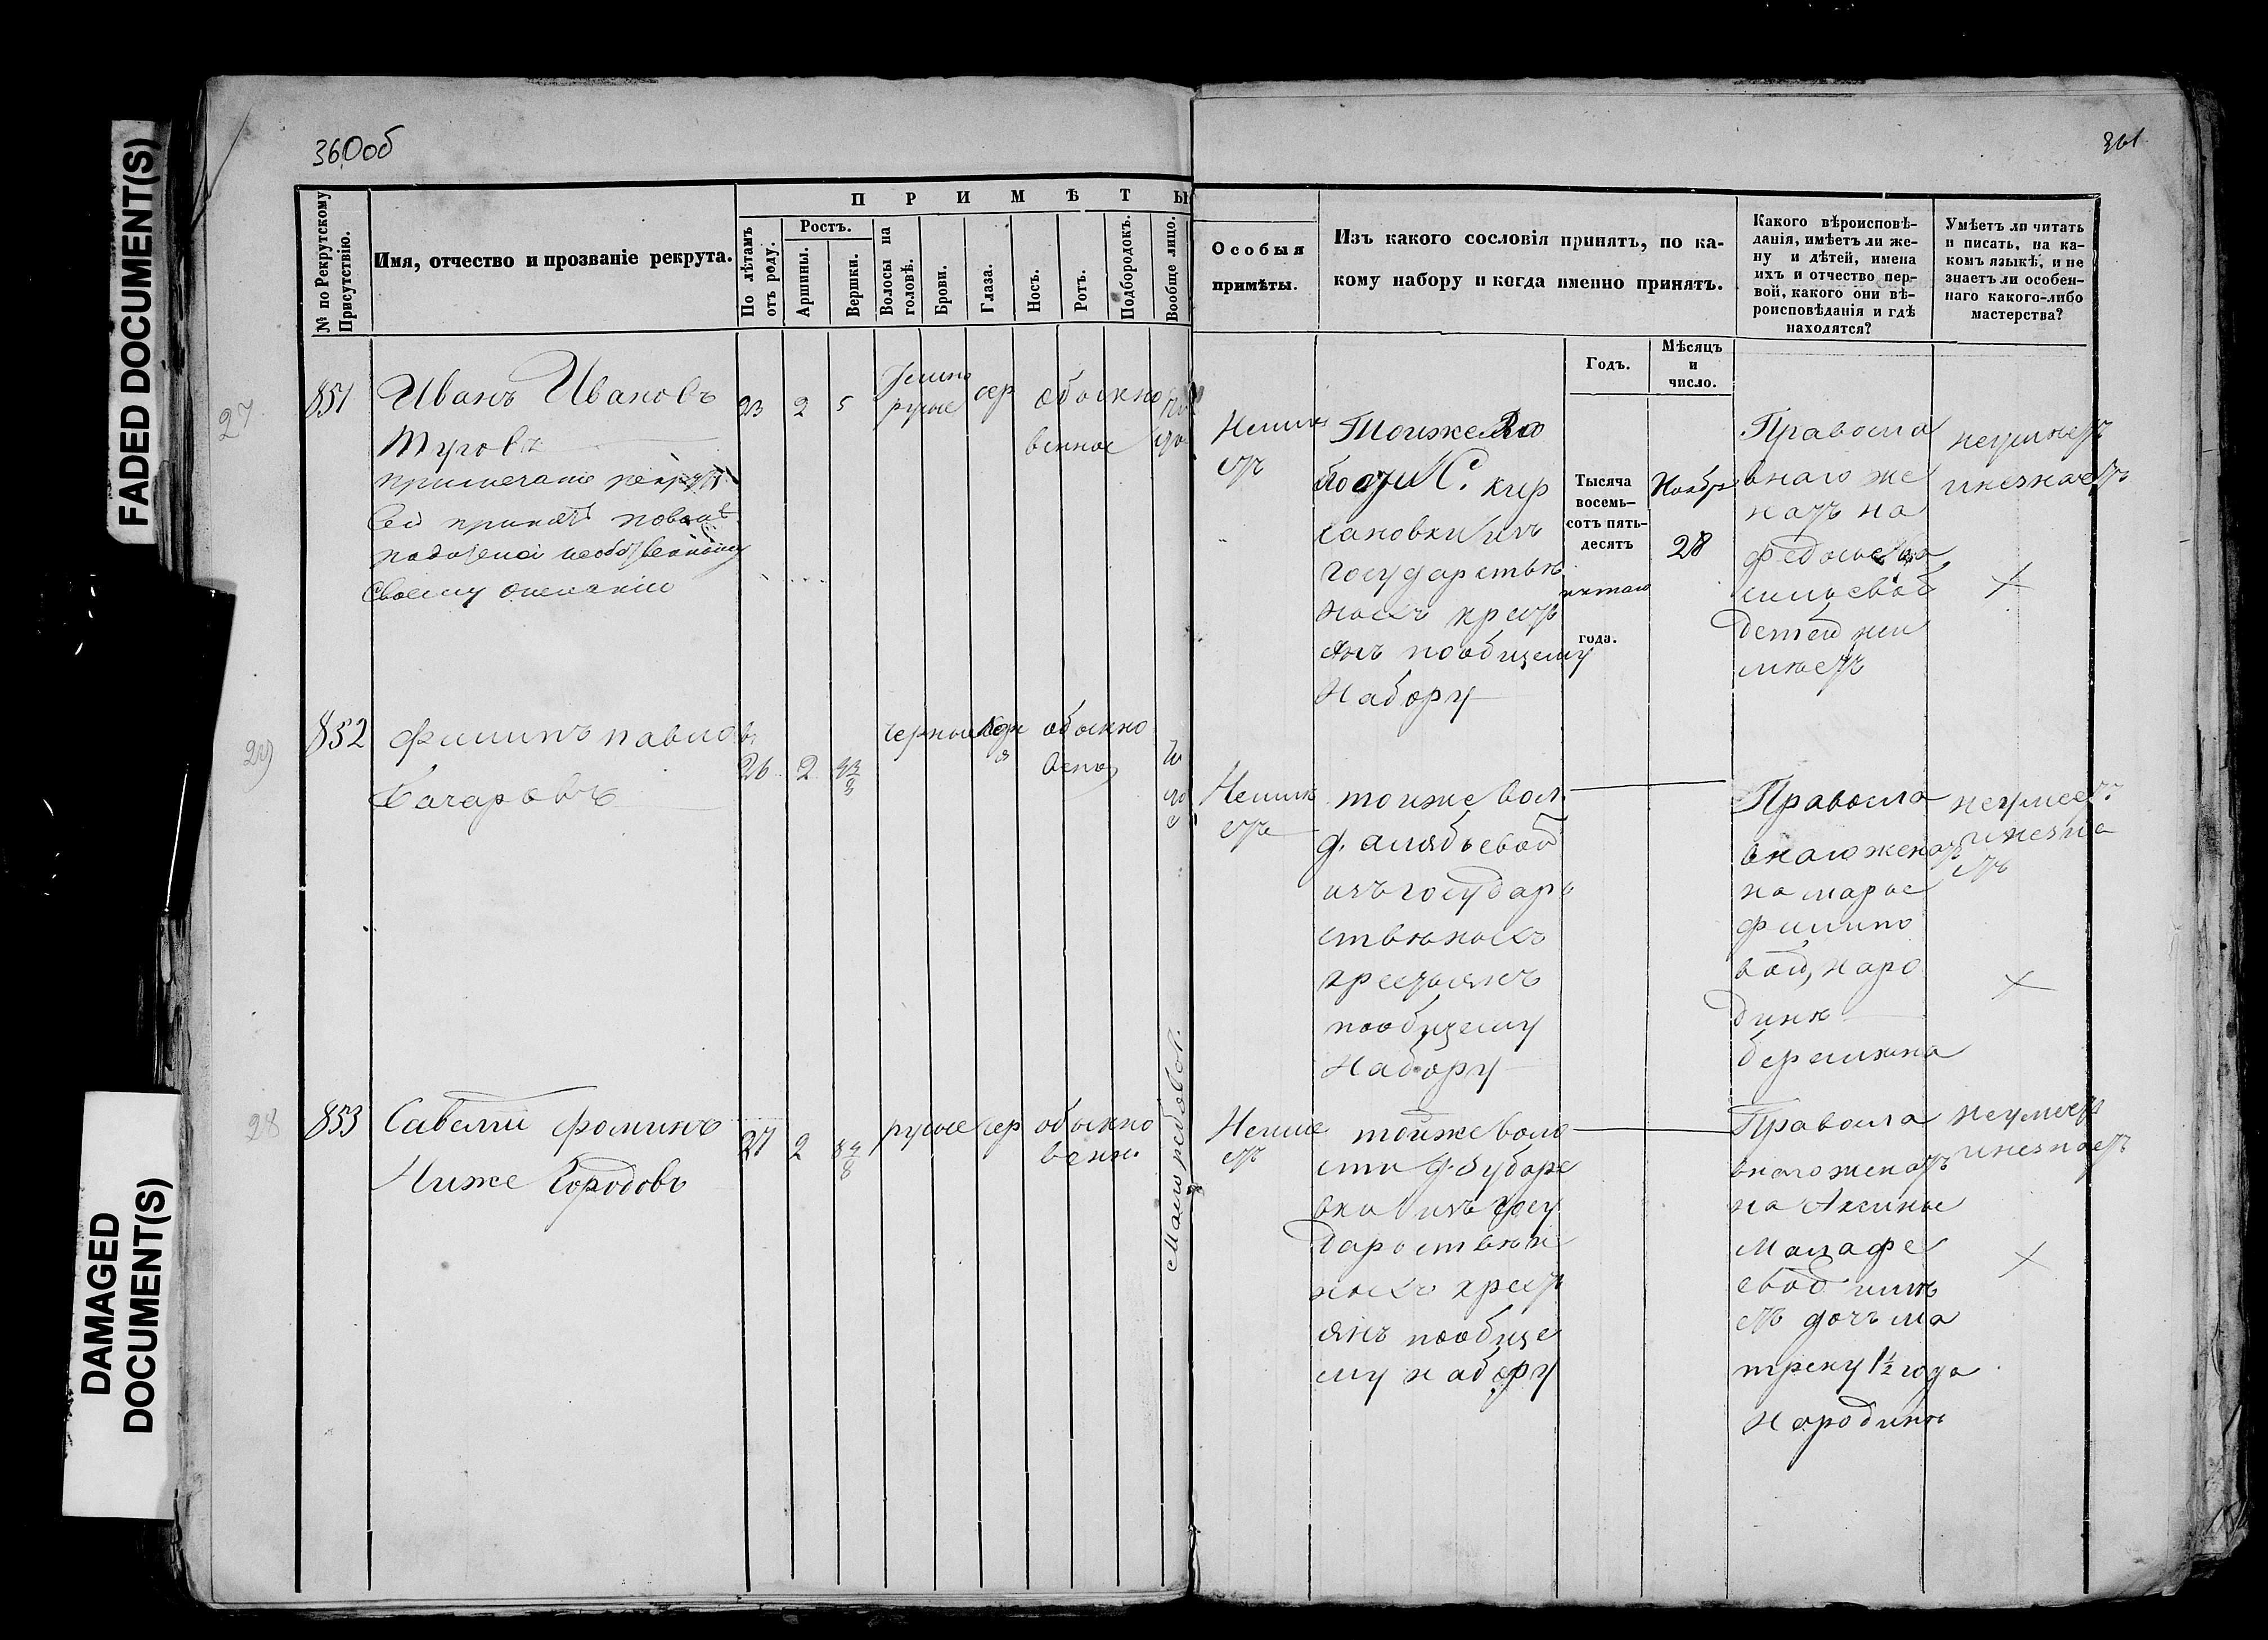 FADED DOCUMENT(S)
DAMAGED
DOCUMENT(S)
360об
361
№ по Рекрутскому
Присутствію.
Имя, отчество и прозваніе рекрута.
П Р И М Ѣ Т Ы
По лѣтамъ
отъ роду.
Ростъ.
Аршины.
Вершки.
Волосы на
головѣ.
Брови.
Глаза.
Носъ.
Ротъ.
Подбородокъ.
Вообще лицо.
Особыя
примѣты.
Изъ какого сословія принятъ, по ка-
кому набору и когда именно принятъ.
Годъ.
Мѣсяцъ
и
число.
Какого вѣроисповѣ-
данія, имѣетъ ли же-
ну и дѣтей, имена
ихъ и отчество пер-
вой, какого они вѣ-
роисповѣданія и гдѣ
находятся?
Умѣетъ ли читать
и писать, на ка-
комъ языкѣ, и не
знаетъ ли особен-
наго какого-либо
мастерства?
27
851
Иванъ Ивановъ
Туровъ
Сей принятъ
своему
23
2
5
Темно
русые
сер
обыкно
венное
Неиме
етъ
Тойже
С. кир
сановки изъ
государствен
ныхъ крест
янъ пообщему
Набору
Тысяча
восемь-
сотъ пять-
десятъ
пятаго
года.
Ноябр
28
Правосла
внаго же
натъ на
федосье
детей не
имеетъ
неумнетъ
инезнаетъ
29
852
Филипъ павловъ
26
2
черные
обыкно
вено
Неиме
етъ
тойже вол.
д. алябьевой
изъ государ
ственыхъ
крестьянъ
пообщему
Набору
Правосла
внаго женатъ
на марье
филипо
вой, наро
дине
беремена
неумеетъ
инезна
етъ
28
853
Савелій фоминъ
Ниже Городовъ
27
2
русые
сер
обыкно
венн.
Малорябоват.
Неиме
етъ
тойже воло
сти д. Зубаре
вки изъ госу
дарственн
ныхъ крест
янъ пообще
му набору
Правосла
внаго женатъ
на Аксинье
Малафе
евой име
етъ дочь ма
трену 1½ года
Народине
неумеет
инезнаетъ